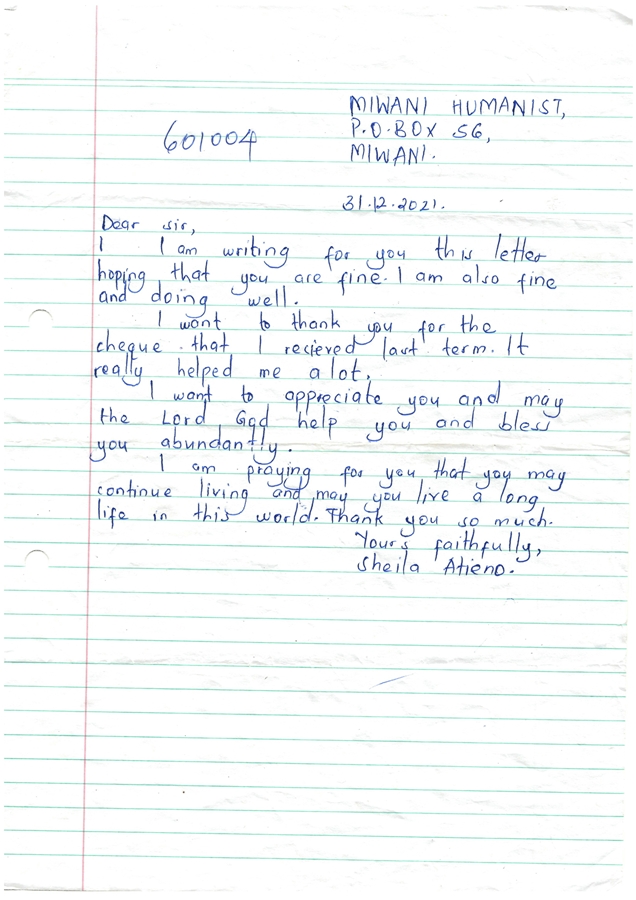 MIWANI HUMANIST,
601004
P.O.BOX 56,
MIWANI.
31.12.2021.
Dear sir,
I I am writing for you this letter
hoping that you are fine. I am also fine
and doing well.
I want to thank you for the
cheque that I recieved last term. It
really helped me a lot.
I want to appreciate you and may
the Lord God help you and bless
you abundantly.
I am praying for you that you may
continue living and may you live a long
life in this world. Thank you so much.
Yours faithfully,
Sheila Atieno.